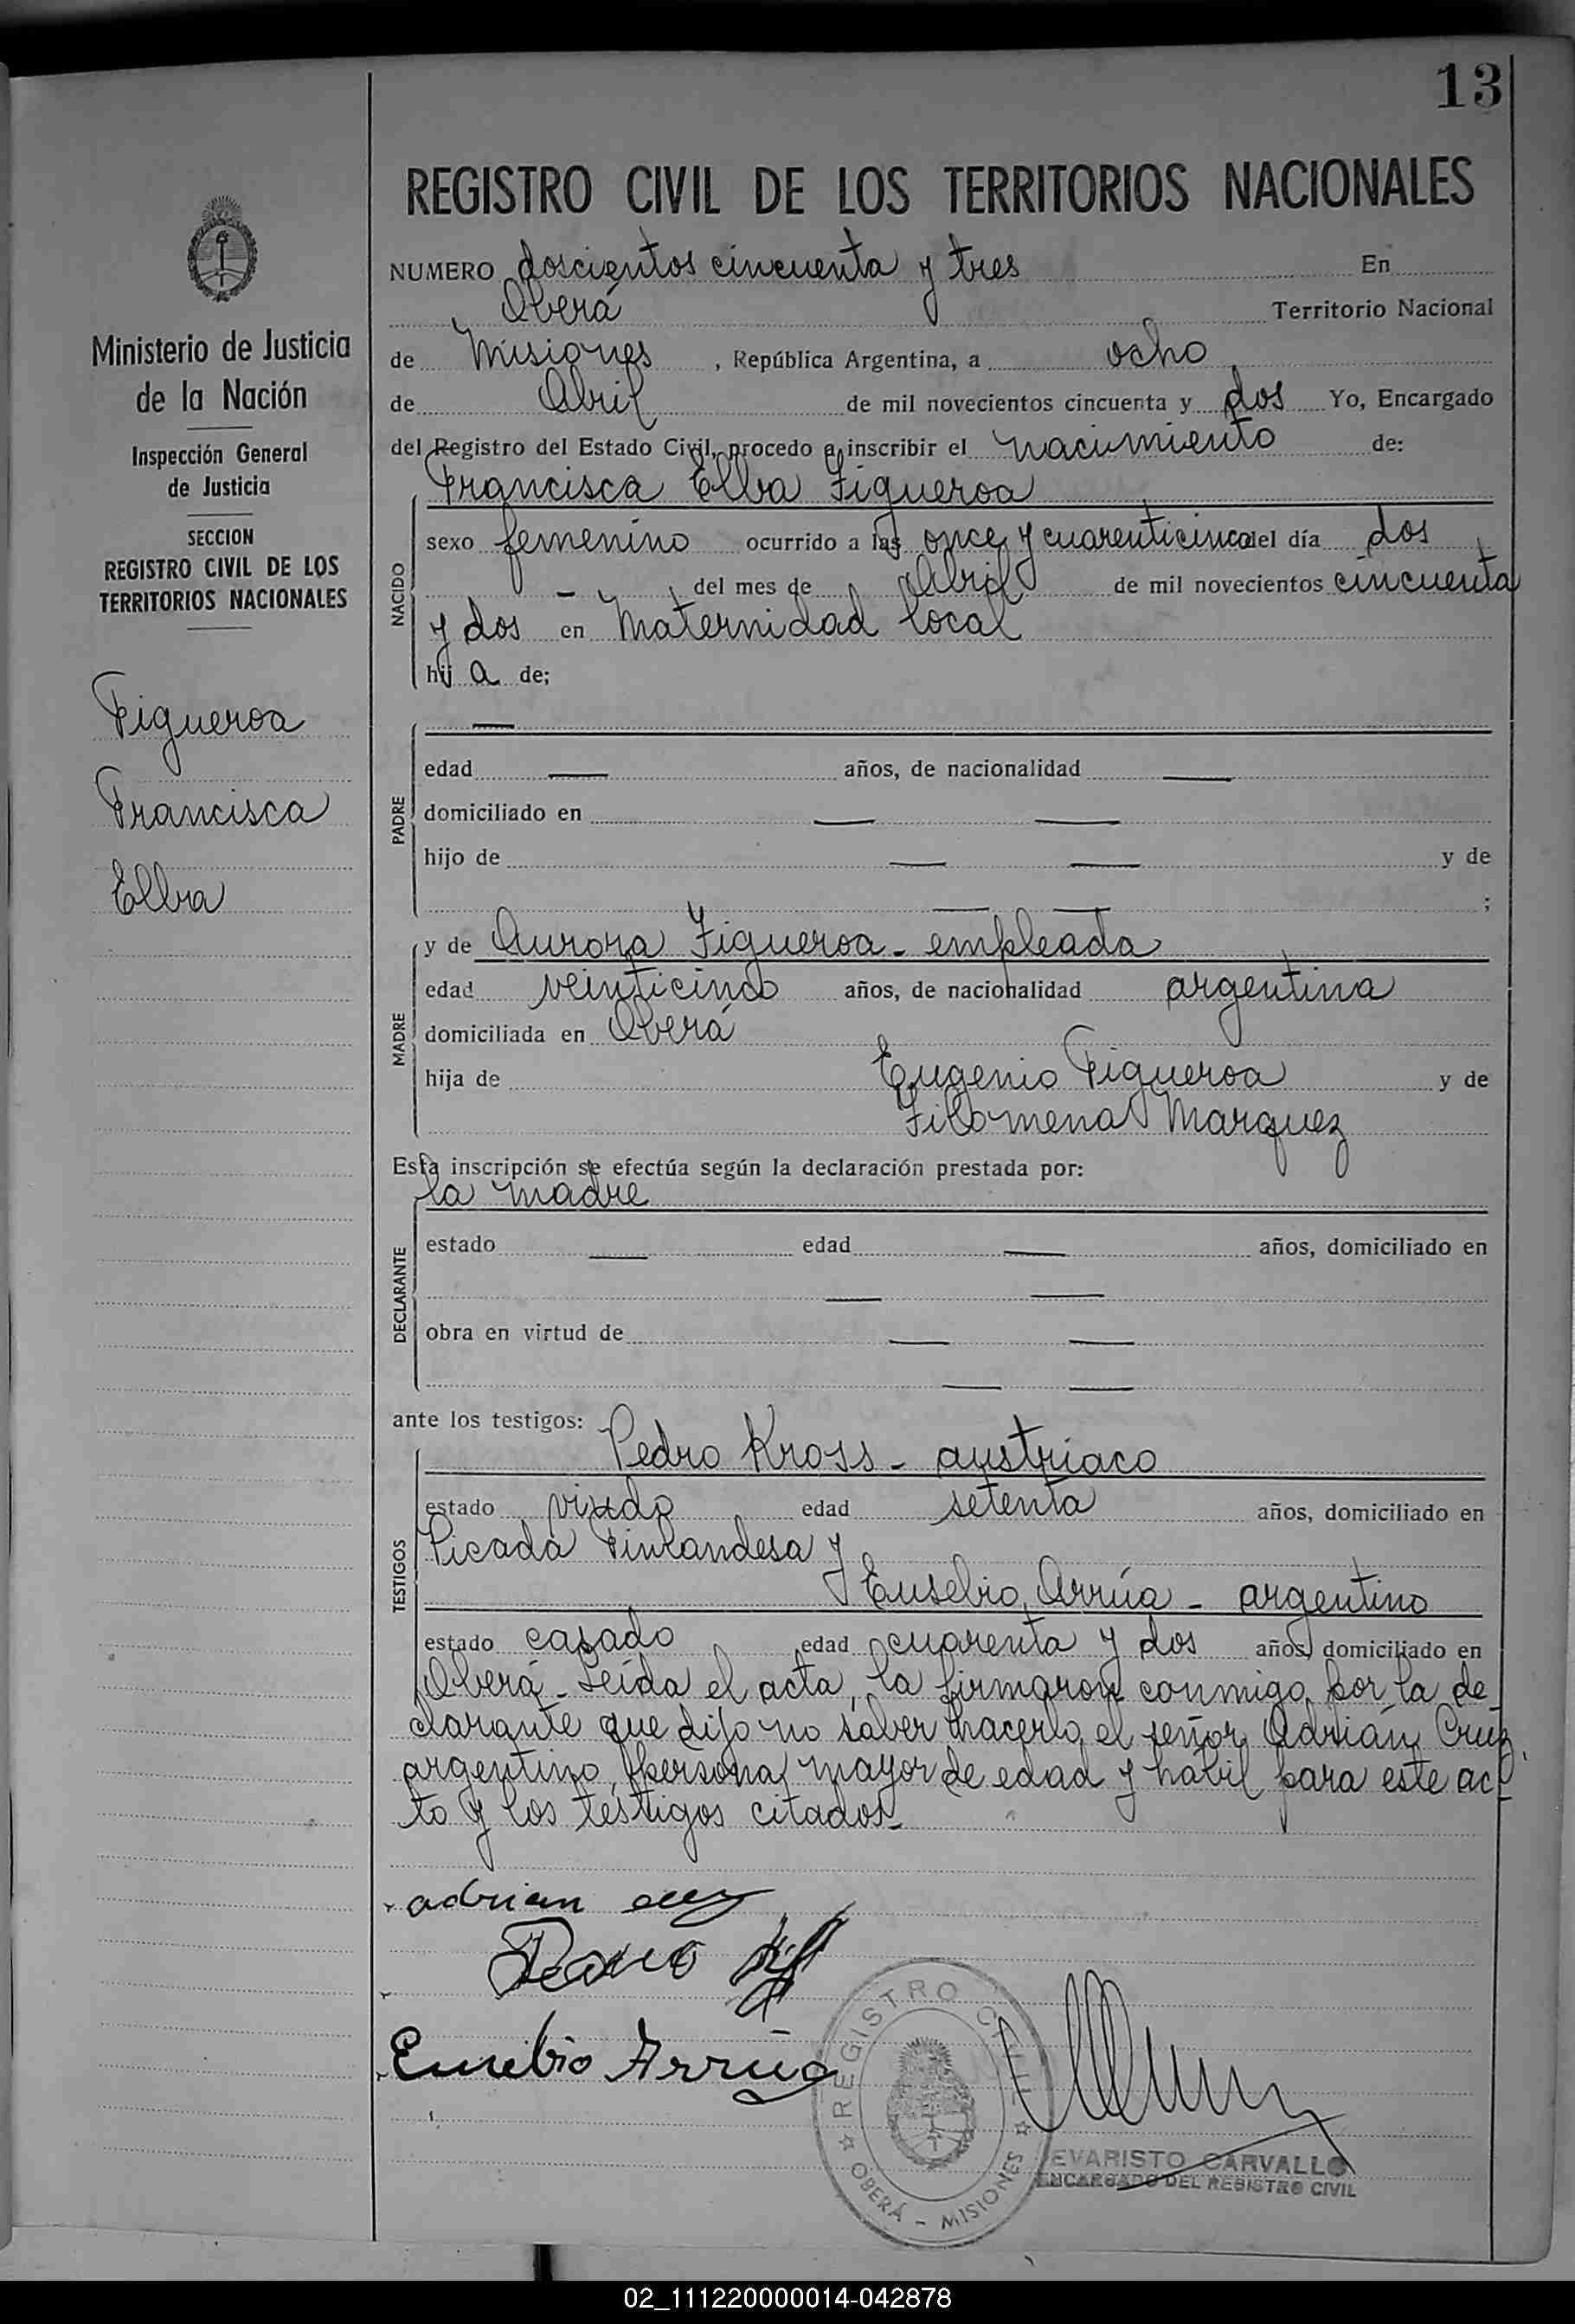 13
REGISTRO CIVIL DE LOS TERRITORIOS NACIONALES
Ministerio de Justicia
de la Nación
Inspección General
de Justicia
SECCION
REGISTRO CIVIL DE LOS
TERRITORIOS NACIONALES
Figueroa
Francisca
Elba
NUMERO doscientos cincuenta y tres En
Oberá Territorio Nacional
de Misiones , República Argentina, a ocho
de Abril de mil novecientos cincuenta y dos Yo, Encargado
del Registro del Estado Civil, procedo a inscribir el nacimiento de:
Francisca Elba Figueroa
NACIDO
sexo femenino ocurrido a las once y cuarenticinco del día dos
— del mes de Abril de mil novecientos cincuenta
y dos en Maternidad local
hij a de;
—
PADRE
edad — años, de nacionalidad —
domiciliado en — —
hijo de — — y de
— — ;
MADRE
y de Aurora Figueroa - empleada
edad veinticinco años, de nacionalidad argentina
domiciliada en Oberá
hija de Eugenio Figueroa y de
Filomena Marquez
Esta inscripción se efectúa según la declaración prestada por:
la madre
DECLARANTE
estado — edad — años, domiciliado en
— —
obra en virtud de — —
— —
ante los testigos:
Pedro Kross - austriaco
TESTIGOS
estado viudo edad setenta años, domiciliado en
Picada Finlandesa y
Eusebio Arrúa - argentino
estado casado edad cuarenta y dos años, domiciliado en
Oberá - Leída el acta, la firmaron conmigo, por la de
clarante que dijo no saber hacerlo, el señor Adrián Cruz,
argentino, persona mayor de edad y hábil para este ac-
to y los testigos citados -
adrian cruz
Eusebio Arrúa
REGISTRO CIVIL
OBERÁ - MISIONES
EVARISTO CARVALLO
ENCARGADO DEL REGISTRO CIVIL
02_111220000014-042878